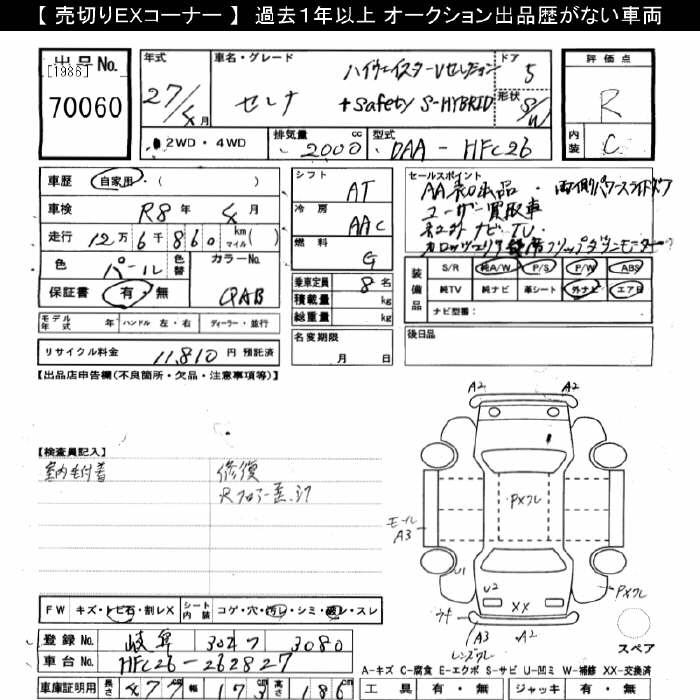 【 売切りEXコーナー 】 過去1年以上 オークション出品歴がない車両
出品 No.
[1986]
70060
年式
27/4月
車名・グレード
セレナ
ハイウェイスターVセレクション
+Safety S-HYBRID
ドア
5
形状
S/W
評価点
R
内装
C
2WD・4WD
排気量
2000 cc
型式
DAA-HFC26
車歴
自家用・( )
車検
R8年 4月
走行
12万6千860 km マイル( )
色
パール
色替
カラーNo.
QAB
保証書
有・無
シフト
AT
冷房
AAC
燃料
G
乗車定員
8名
積載量
kg
総重量
kg
名変期限
月 日
セールスポイント
・両側パワースライドドア
ユーザー買取車
ナビ TV
フリップダウンモニター
装備品
S/R 純A/W P/S P/W ABS
純TV 純ナビ 革シート 外ナビ エアB
ナビ型番:
後日品
モデル年式 年 ハンドル 左・右 ディーラー・並行
リサイクル料金
11,810 円 預託済
【出品店申告欄(不良箇所・欠品・注意事項等)】
【検査員記入】
室内毛付着
修復
A2
A2
PXワレ
モール
A3
U1
U2
XX
PXワレ
A3
A2
レンズワレ
スペア
FW キズ・トビ石・割レX
シート内装 コゲ・穴・汚レ・シミ・破レ・スレ
登録 No.
岐阜 307 3080
車台 No.
HFC26-262827
車庫証明用 長さ 477cm 幅 173cm 高さ 186cm
A-キズ C-腐食 E-エクボ S-サビ U-凹ミ W-補修 XX-交換済
工具 有・無 ジャッキ 有・無